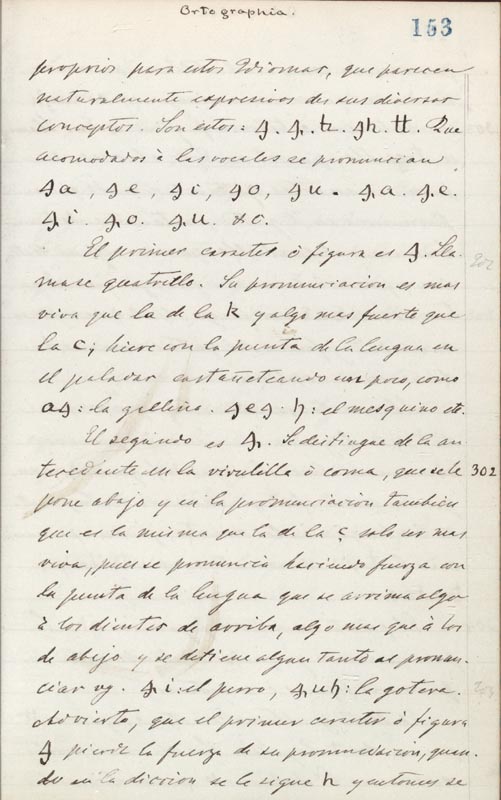 Ortographia.
153
proprios para estos Idiomas, que parecen
naturalmente expresivos des sus diversos
conceptos. Son estos: ꜭ. ꜯ. tz. ꜯh. tt. Que
acomodados à las vocales se pronuncian
ꜭa, ꜭe, ꜭi, ꜭo, ꜭu. ꜯa. ꜯe.
ꜯi. ꜯo. ꜯu. &c.
El primer caracter ò figura es ꜭ. Lla-
mase quatrillo. Su pronunciacion es mas
viva que la de la k y algo mas fuerte que
la c; hiere con la punta de la lengua en
el paladar castañeteando un poco, como
aꜭ: la gallina. ꜭeꜭ. h: el mesquino etc.
El segundo es ꜯ. Se distingue de la an-
tecedente en la virulilla ò coma, que se le 302
pone abajo y en la pronunciacion tambien
que es la misma que la de la ç solo ser mas
viva, pues se pronuncia haciendo fuerza con
la punta de la lengua que se arrima algo
à los dientes de arriba, algo mas que à los
de abajo y se detiene algun tanto al pronun-
ciar vg. ꜯi: el perro, ꜯuh: la gotera.
Advierto, que el primer caracter ò figura
ꜭ pierde la fuerza de su pronunciacion, quan-
do en la diccion se le sigue h y entonces se